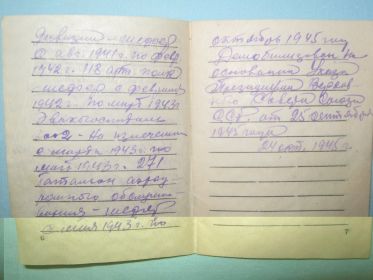 дивизии шофер
с авг. 1941 г. по февр
1942 г. 118 арт. полк
шофер с февраля
1942 г. по март 1943 г.
Эвакогоспиталь
на излечении
с марта 1943 г. по
май 1943 г. 271
баталион аэрод
ромного обслужи
вания - шофер
с июня 1943 г. по
6
октябрь 1945 год
Демобилизован на
основании Указа
Президиума Верхов
ного Совета Союза
ССР. от 25 сентября
1945 года
24 окт. 1945 г.
7